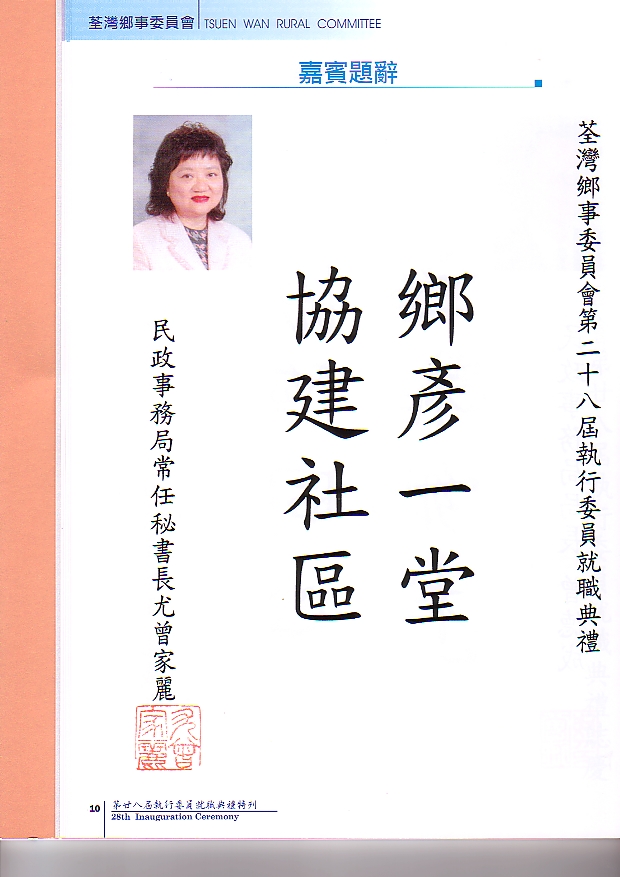 荃灣鄉事委員會 TSUEN WAN RURAL COMMITTEE
嘉賓題辭
荃灣鄉事委員會第二十八屆執行委員就職典禮
鄉彥一堂
協建社區
民政事務局常任秘書長尤曾家麗
尤曾家麗
10 第廿八屆執行委員就職典禮特刊
28th Inauguration Ceremony